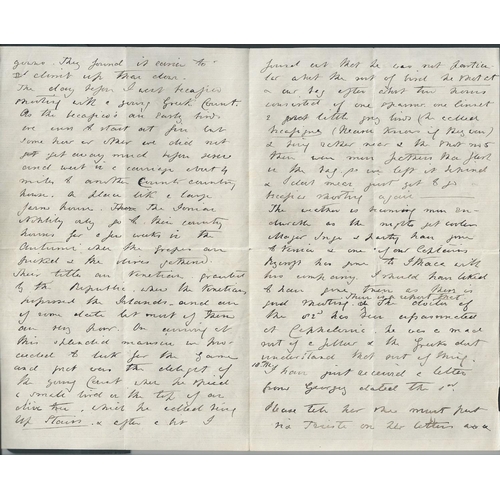 goons. They found it easier to
climb up than down.
The day before I went becafico
shooting with a young Greek Count.
As the becafico's are early birds
we were to start at five but
some how or other we did not
get away much before seven
and went in a carriage about 4
miles to another Count's country
house. A place like a large
farm house. These the Ionian
Nobility only go to their country
houses for a few weeks in the
Autumn when the grapes are
picked & the olives gathered.
Their title are Venetian granted
by the Republic when the Venetians
possessed the Islands and are
of some date but most of them
are very poor. On arriving at
this splendid mansion we pro-
ceeded to look for the game
and great was the delight of
the young Count when he spied
a small bird in the top of an
olive tree, which he called being
Up Stairs. & after a bit I
found out that he was not particu-
lar about the sort of bird he shot at
& our bag after about two hours
consisted of one sparrow one linnet
& four little grey birds (he called
becafigos (Heaven knows if they were)
& being rather near & the shot
there were more feathers than flesh
in the bag so we left it behind
& I shot never just yet to go
becafico shooting again
The weather is becoming more en-
durable as the nights get cooler.
Major Inge & party have gone
to Venice & one of our Captains
George has gone to Ithaca with
his company. I should have liked
to have gone there as there is
good shooting. There is a report that the doctor of
the has been assassinated
at Cephalonia he was a mad
sort of a fellow & the Greeks dont
understand that sort of thing.
10th I have just received a letter
from Georgy dated the 3rd.
Please tell her she must put
via Trieste on her letters as a